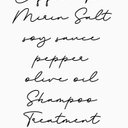 Mirin Salt
soy sauce
pepper
olive oil
Shampoo
Treatment